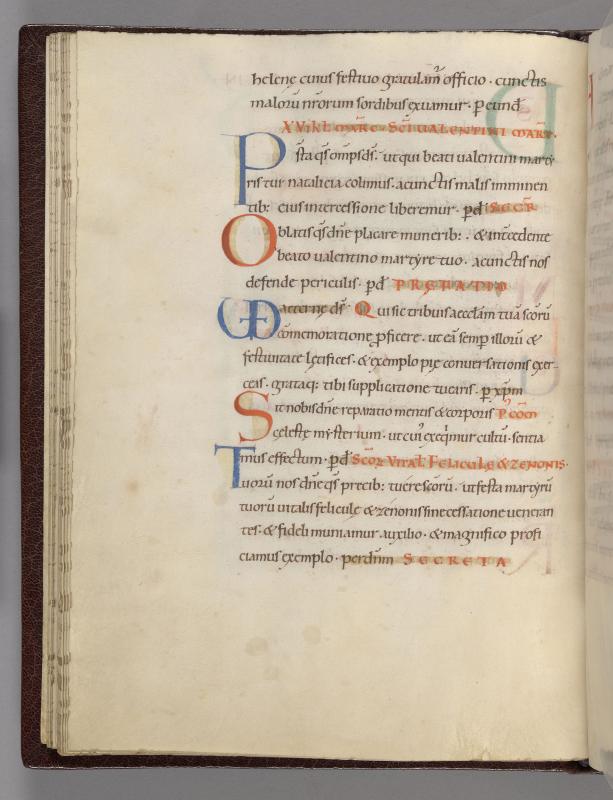 helenę cuius festiuo gratulam̄ officio · cunctis
maloru nr̄orum sordibus exuamur · p eund
XVI KL MARC · SC̄I UALENTINI MART̄
Psta qs om̄ps ds̄ · ut qui beati ualentini marty
ris tui natalicia colimus · a cunctis malis imminen
tib: eius intercessione liberemur · pd̄ SECR̄
Oblatis qs dn̄e placare munerib: · & int̄cedente
beato ualentino martyre tuo · a cunctis nos
defende periculis · pd̄ PREFATIO
aeternę ds̄ · Qui sic tribuis aeccl̄am tuā sc̄orū
com̄emoratione pficere · ut eā semp illorū &
festiuitate lętifices · & exemplo pię conuersationis exer
ceis · grataq: tibi supplicatione tuearis · p xp̄m
Sit nobis dn̄e reparatio mentis & corporis P. cōm̄
cęleste mysterium · ut cui exequimur cultū · sentia
mus effectum · pd̄ SC̄OR̄ VITAL FELICULE & ZENONIS ·
Tuorū nos dn̄e qs precib: tuere sc̄orū · ut festa martyrū
tuorū uitalis felicule & zenonis sine cessatione ueneran
tes · & fideli muniamur auxilio · & magnifico profi
ciamus exemplo · per dn̄m SECRETA